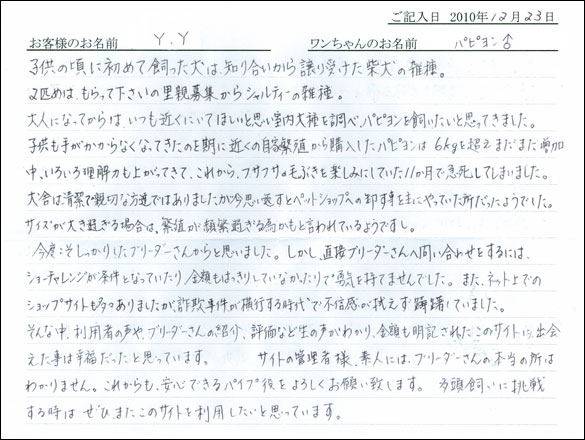 ご記入日 2010年12月23日
お客様のお名前 Y.Y ワンちゃんのお名前 パピヨン♂
子供の頃に初めて飼った犬は、知り合いから譲り受けた柴犬の雑種。
2匹めは、もらって下さいの里親募集からシャルティーの雑種。
大人になってからは いつも近くにいてほしいと思い室内犬種を調べ、パピヨンを飼いたいと思ってきました。
子供も手がかからなくなってきたのを期に近くの自家繁殖から購入したパピヨンは 6kgを超えまだまだ増加
中、いろいろ理解力も上がってきて、これから、フサフサの毛ぶきを楽しみにしていた11か月で急死してしまいました。
犬舎は清潔で親切な方達ではありましたが今思い返すとペットショップへの卸す事を主にやっていた所だったようでした。
サイズが大き過ぎる場合は、繁殖が頻繁過ぎる為かもと言われているようですし。
今度こそしっかりしたブリーダーさんからと思いました。しかし、直接ブリーダーさんへ問い合わせをするには、
ショーチャレンジが条件となっていたり、金額もはっきりしていなかったりで勇気を持てませんでした。また、ネット上での
ショップサイトも多々ありましたが、詐欺事件が横行する時代で不信感が拭えず躊躇していました。
そんな中、利用者の声や、ブリーダーさんの紹介、評価など生の声がわかり、金額も明記された、このサイトに出会
えた事は幸福だったと思っています。 サイトの管理者様、素人には、ブリーダーさんの本当の所は
わかりません。これからも、安心できるパイプ役をよろしくお願い致します。 多頭飼いに挑戦
する時は ぜひ、また、このサイトを利用したいと思っています。